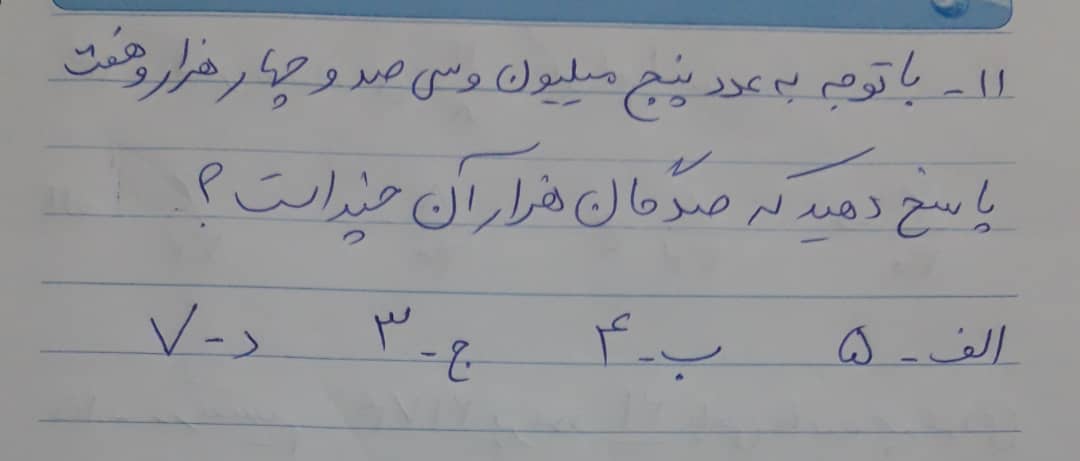 ۱۱- با توجه به عدد پنج میلیون و سی صد و چهار هزار و هفت
پاسخ دهید که صدگان هزار آن چند است ؟
الف - ۵ ب - ۴ ج - ۳ د - ۷